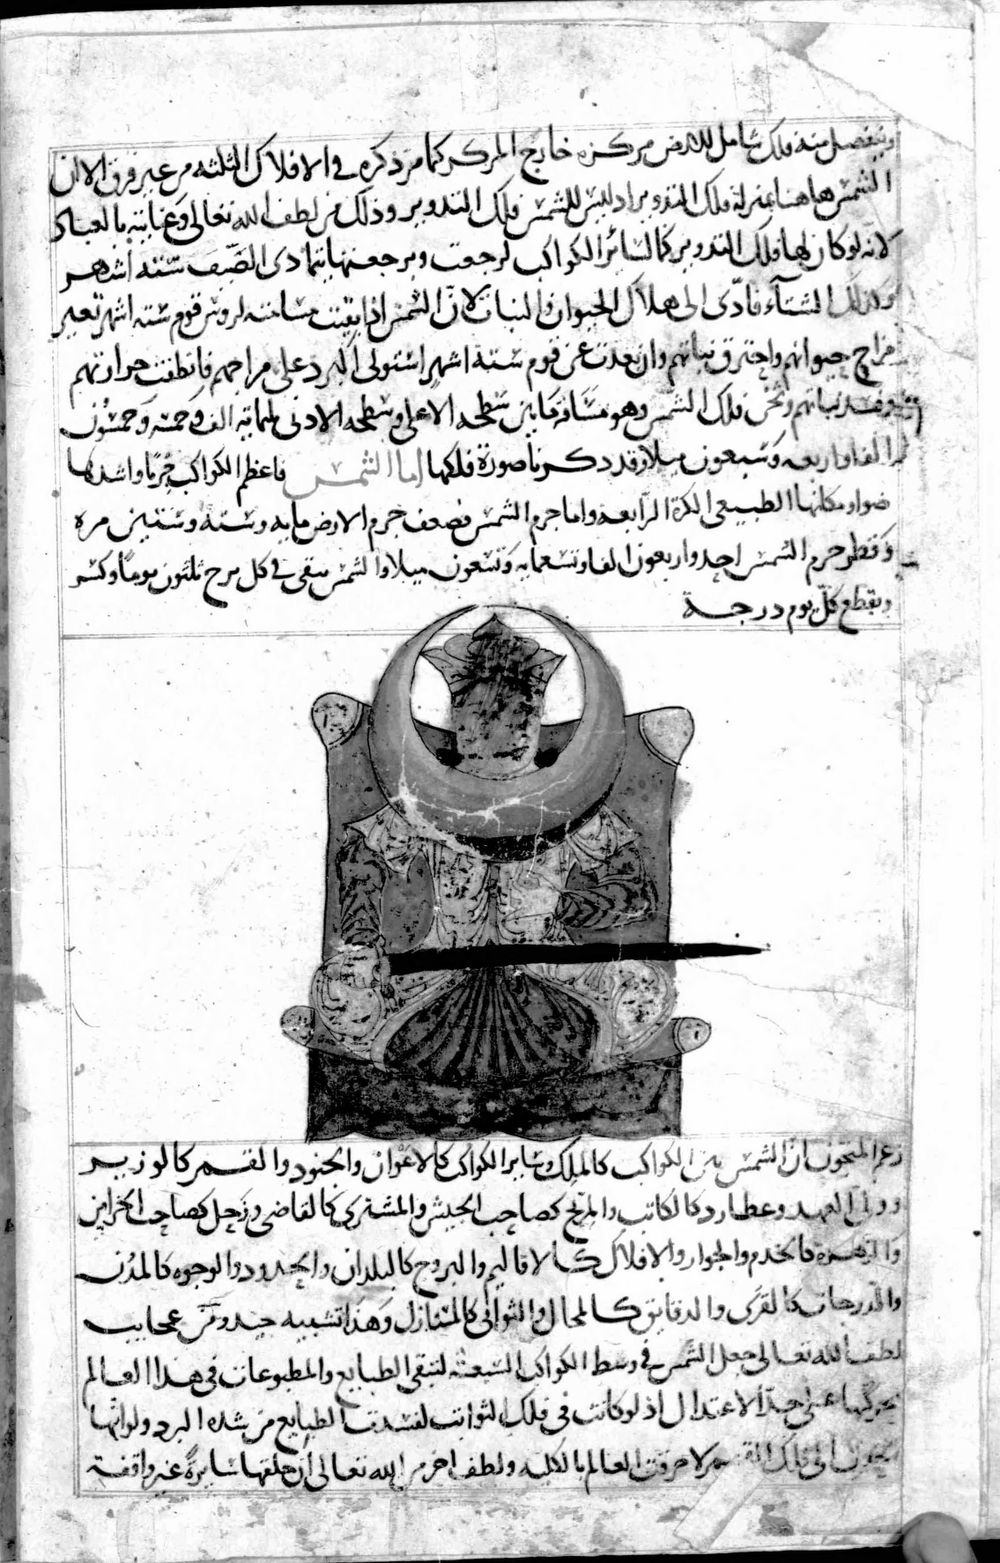 وينفصل منه فلك شامل للارض مركزه خارج المركز كما مر ذكره في الافلاك الثلثه من غير فرق الا ان
الشمس هاهنا بمنزلة فلك التدوير اذ ليس للشمس فلك التدوير وذلك من لطف الله تعالى وعنايته بالعباد
لانه لو كان لها فلك التدوير كما لسائر الكواكب لرجعت وبرجعتها يتمادى الصيف ستة اشهر
وكذلك الشتاء فادى الى هلاك الحيوان والنبات لان الشمس اذا بقيت مسامتة لروس قوم سته اشهر تغير
مزاج حيوانهم واحترق نباتهم وان بعدت عن قوم ستة اشهر استولى البرد على مزاجهم فانطفت حرارتهم
وفسد نباتهم وثخن فلك الشمس وهو مسافة ما بين سطحه الاعلى وسطحه الادنى ثلثماية الف وخمسة وخمسون
الفا واربعه وسبعون ميلا وقد ذكرنا صورة فلكها اما الشمس فاعظم الكواكب جرما واشدها
ضوا ومكانها الطبيعي الكرة الرابعة واما جرم الشمس فضعف جرم الارض مايه وستة وستين مره
وقطر جرم الشمس احد واربعون الفا وتسعمايه وتسعون ميلا والشمس تبقى في كل برج ثلثون يوما وكسر
وتقطع كل يوم درجة
زعم المنجمون ان الشمس بين الكواكب كالملك وساير الكواكب كالاعوان والجنود والقمر كالوزير
وولي العهد وعطارد كالكاتب والمريخ كصاحب الجيش والمشتري كالقاضي وزحل كصاحب الخزاين
والزهرة كالخدم والجوار والافلاك كالاقاليم والبروج كالبلدان والحدود والوجوه كالمدن
والدرجات كالقرى والدقايق كالمحال والثواني كالمنازل وهذا تشبيه جيد ومن عجايب
لطف الله تعالى جعل الشمس في وسط الكواكب السبعة لتبقى الطبايع والمطبوعات في هذا العالم
بحركتها على حد الاعتدال اذ لو كانت في فلك الثوابت لفسدت الطبايع من شدة البرد ولو انها
الى فلك القمر لاحرقت العالم بالكليه ولطف اخر من الله تعالى ان خلقها سايرة غير واقفة